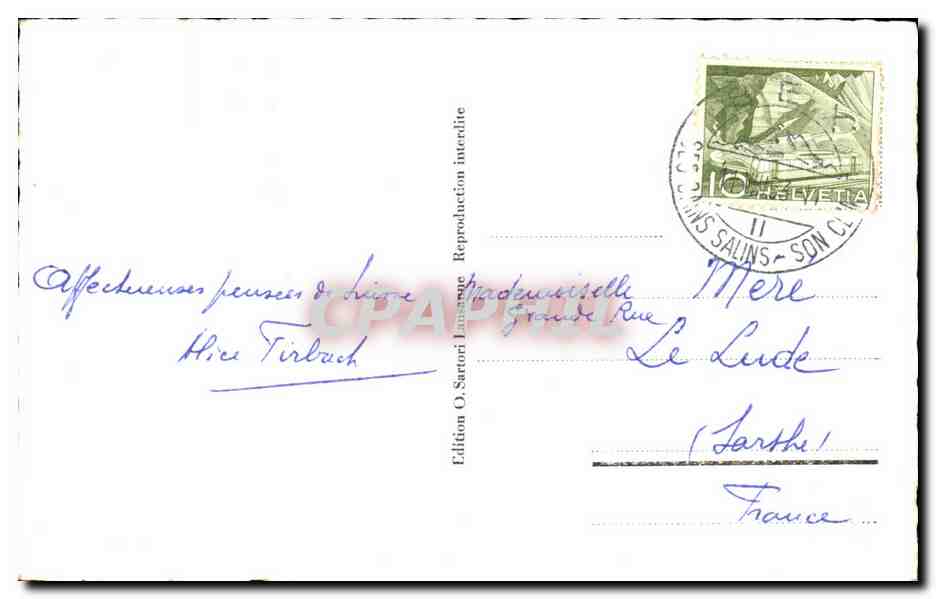 Affectueuses pensées de Suisse
Alice Tirbach
Edition O. Sartori Lausanne Reproduction interdite
10 HELVETIA
BAINS SALINS ~ SON
II
Mademoiselle Mère
Grande Rue
Le Lude
(Sarthe)
France
CPAPHIL